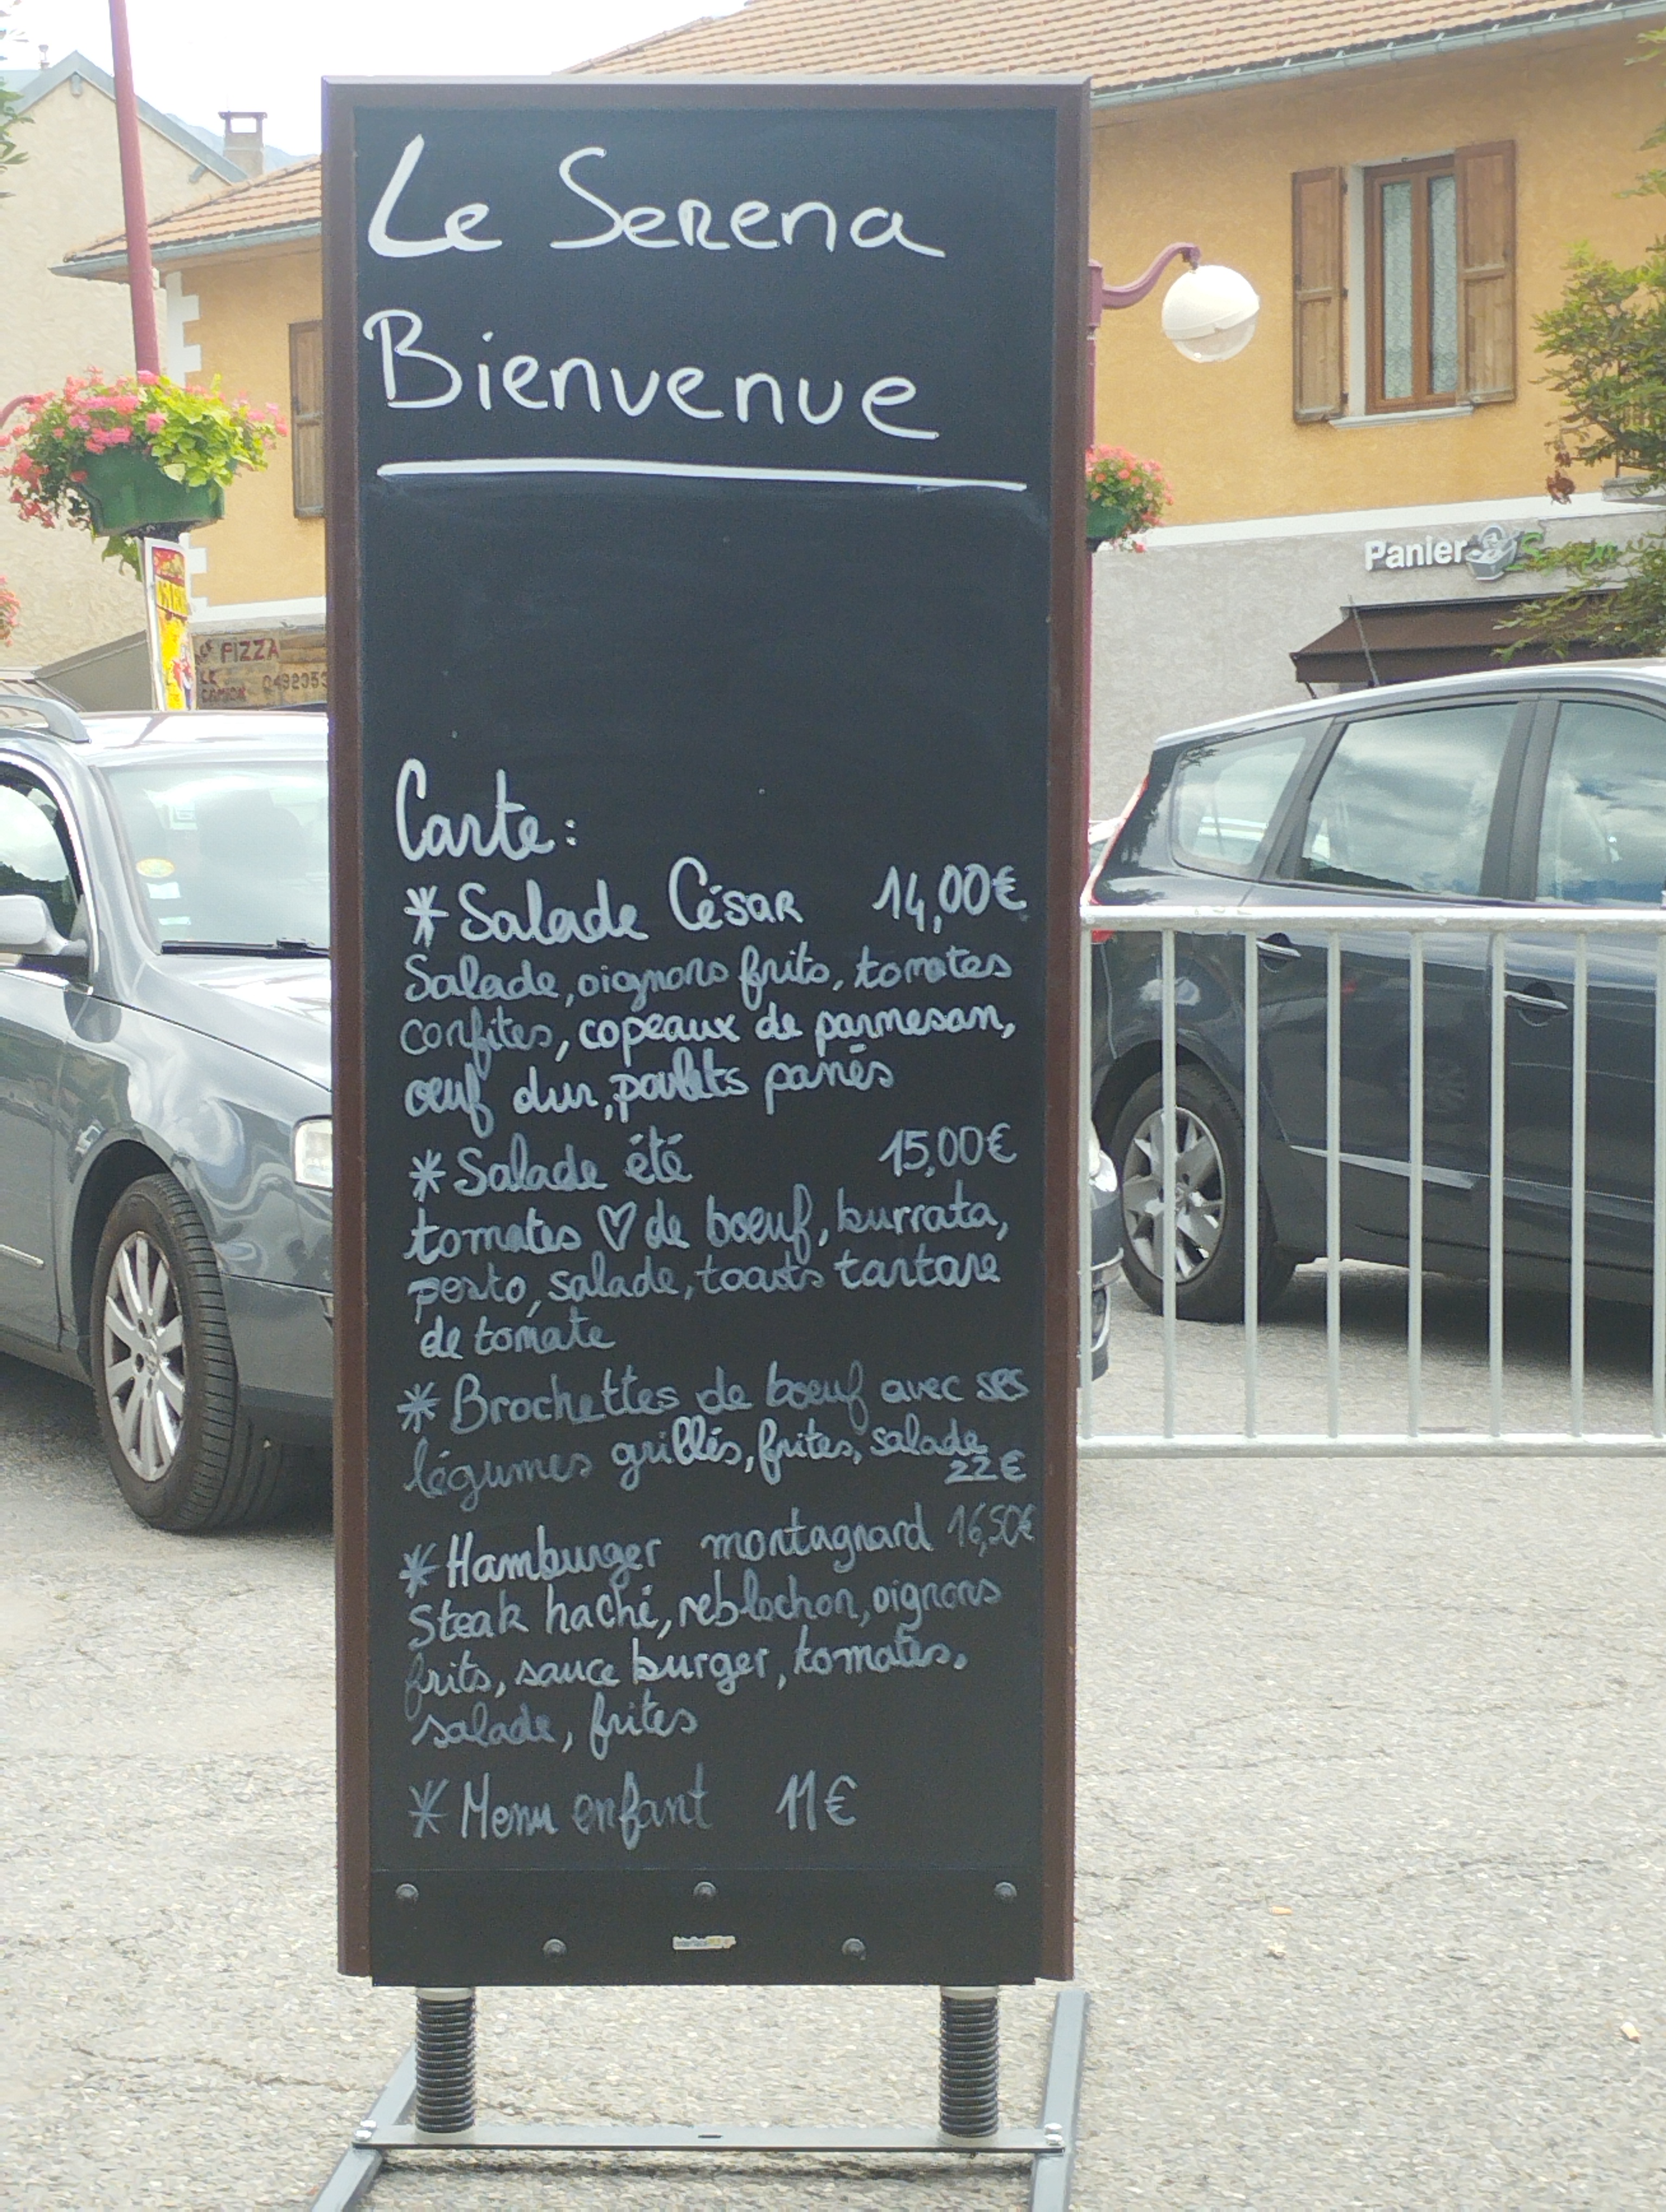 Le Serena
Bienvenue
Carte:
*Salade César 14,00€
Salade, oignons frits, tomates
confites, copeaux de parmesan,
œuf dur, poulets panés
*Salade été 15,00€
tomates ♡ de boeuf, burrata,
pesto, salade, toasts tartare
de tomate
*Brochettes de boeuf avec ses
légumes grillés, frites, salade
22€
*Hamburger montagnard 16,50€
Steak haché, reblochon, oignons
frits, sauce burger, tomates,
salade, frites
*Menu enfant 11€
Panier
PIZZA
LE
CAMION 0492353